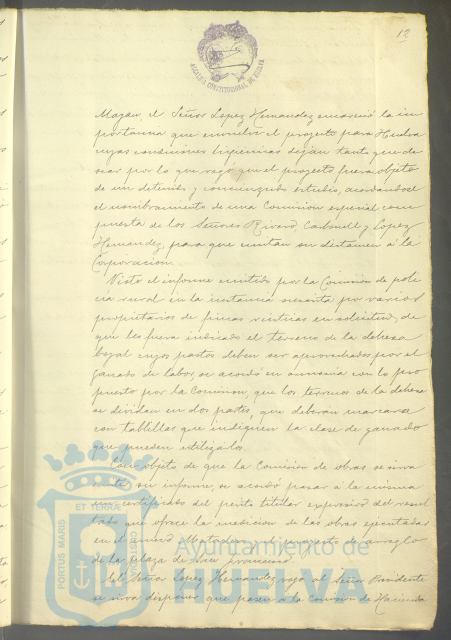 12
ALCALDIA CONSTITUCIONAL DE HUELVA
el Señor Lopez Hernandez encareció la im
portancia que envuelve el proyecto para Huelva
cuyas condiciones higienicas dejan tanto que de
sear por lo que rogó que el proyecto fuera objeto
de un detenido y concienzudo estudio, acordandose
el nombramiento de una Comision especial com
puesta de los Señores Rivero, Carbonell y Lopez
Hernandez, para que emitan su dictamen á la
Corporacion.
Visto el informe emitido por la Comision de poli
cia rural en la instancia suscrita por varios
propietarios de fincas rusticas en solicitud, de
que les fuera indicado el terreno de la dehesa
boyal cuyos pastos deben ser aprovechados por el
ganado de labor, se acordó en armonia con lo pro
puesto por la Comision, que los terrenos de la dehesa
se dividan en dos partes, que deberan marcarse
con tablillas que indiquen la clase de ganado
que pueden utilizarlos.
Con objeto de que la Comision de obras se sirva
emitir su informe, se acordó pasar á la misma
un certificado del perito titular expresivo del resul
tado que ofrece la medicion de las obras ejecutadas
en el nuevo Matadero y el proyecto de arreglo
de la plaza de
El Señor Lopez Hernandez rogó al Señor Presidente
se sirva disponer que pasen á la Comision de Hacienda
PORTUS MARIS
ET TERRÆ
CUSTODIA
Ayuntamiento de
HUELVA